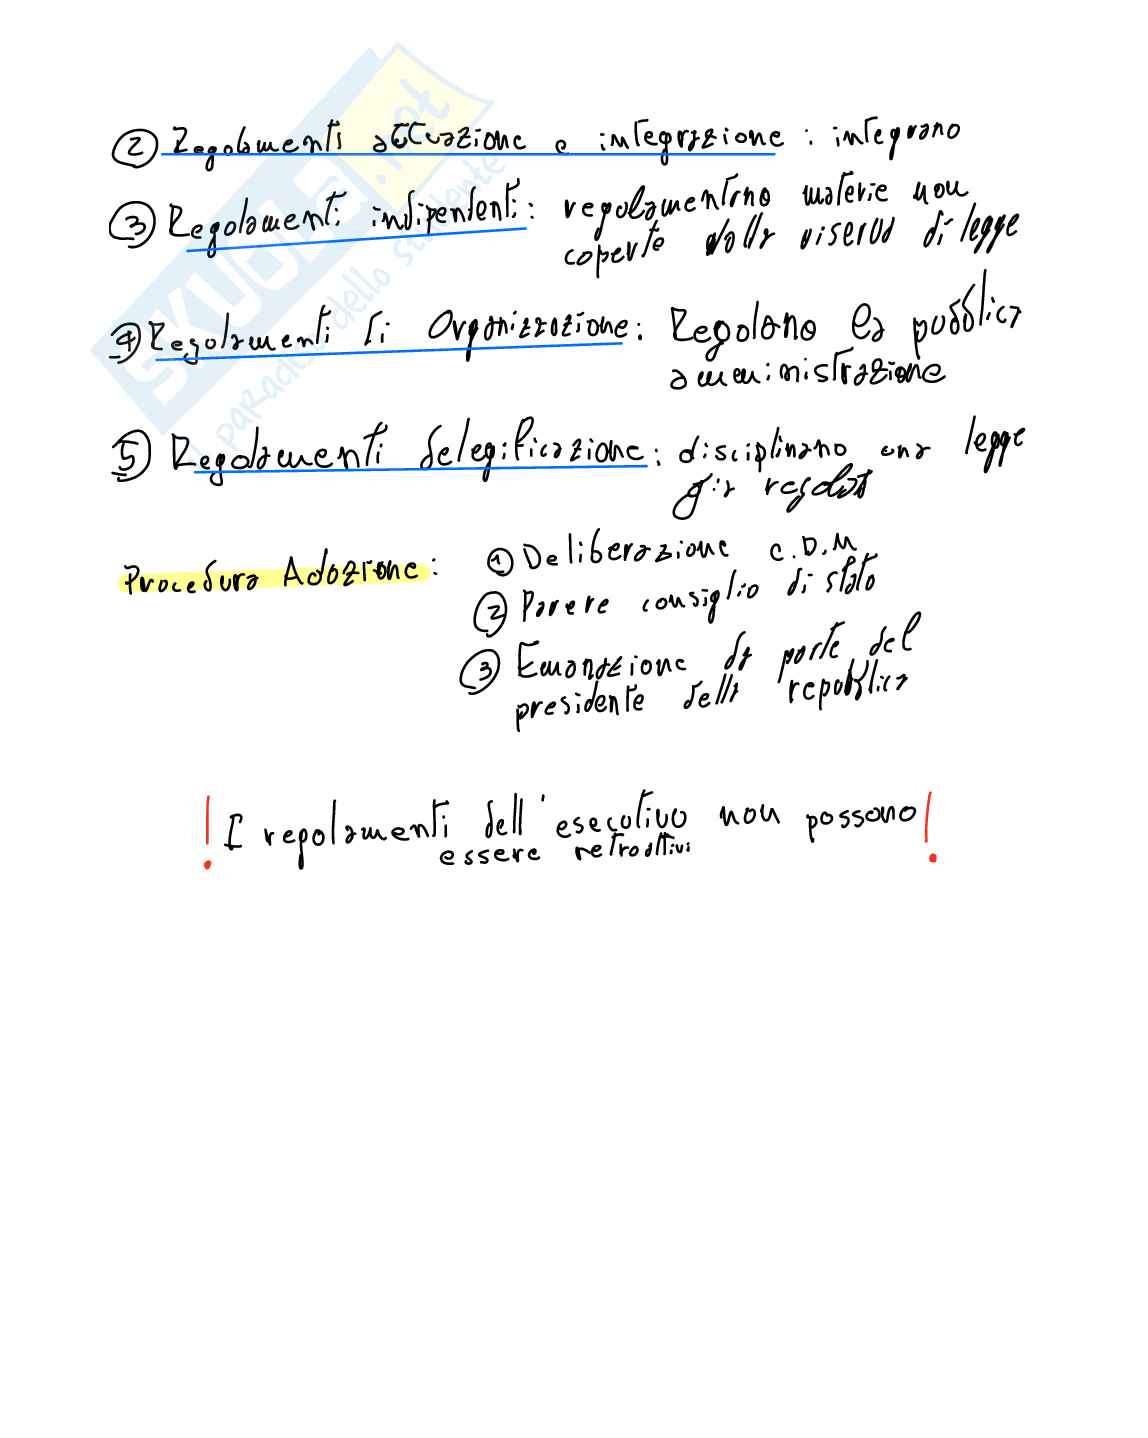 ② Regolamenti attuazione e integrazione : integrano
③ Regolamenti indipendenti : regolamentano materie non
coperte dalla riserva di legge
④ Regolamenti di Organizzazione : Regolano la pubblica
amministrazione
⑤ Regolamenti delegificazione : disciplinano una legge
già regolata
Procedura Adozione : ① Deliberazione C.D.M
② Parere consiglio di stato
③ Emanazione da parte del
presidente della repubblica
! I regolamenti dell'esecutivo non possono !
essere retroattivi
SKUOLA.net
paradiso dello studente